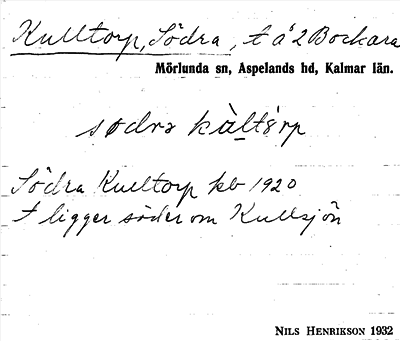 Kulltorp, Södra, t å 2 Bockara
Mörlunda sn, Aspelands hd, Kalmar län.
södra kàltårp
Södra Kulltorp kb 1920
t ligger söder om Kullsjön
NILS HENRIKSON 1932